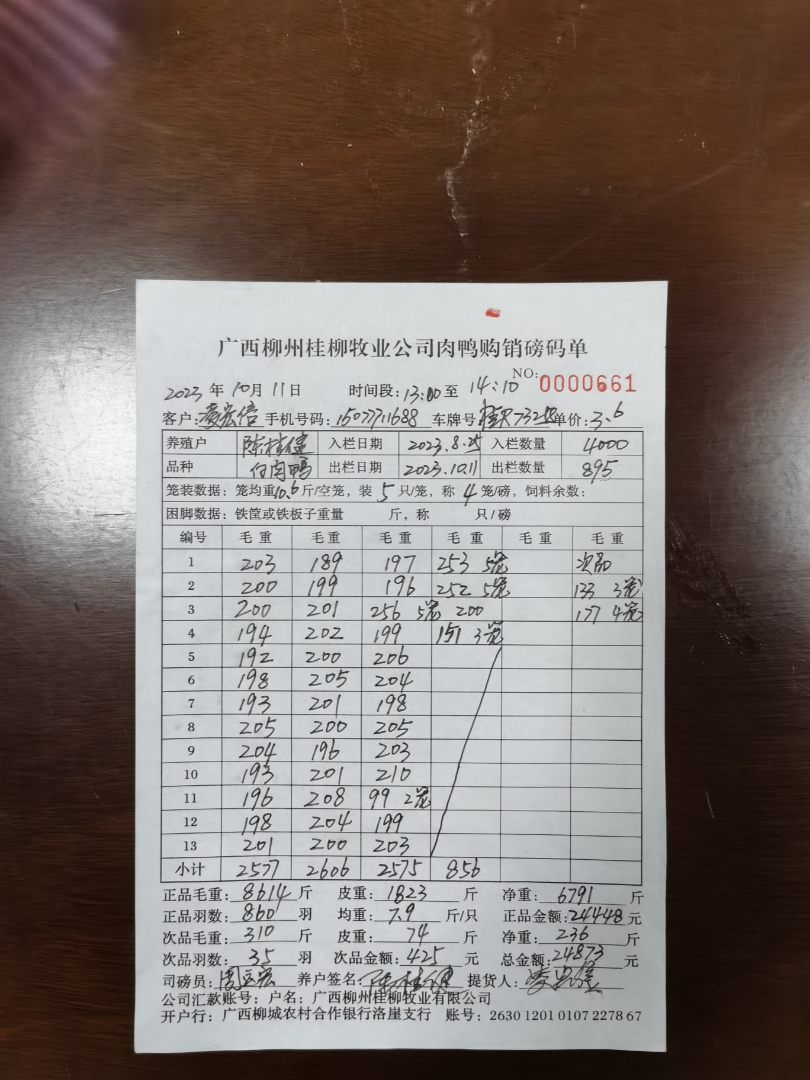 广西柳州桂柳牧业公司肉鸭购销磅码单
NO: 0000661
2023 年 10 月 11 日 时间段: 13:00 至 14:10
客户: 手机号码: 15077711688 车牌号 单价: 3.6
养殖户 陈桂健 入栏日期 2023.8.25 入栏数量 4000
品种 白肉鸭 出栏日期 2023.10.11 出栏数量 895
笼装数据: 笼均重 10.6 斤/空笼, 装 5 只/笼, 称 4 笼/磅, 饲料余数:
困脚数据: 铁筐或铁板子重量 斤, 称 只/磅
编号 毛重 毛重 毛重 毛重 毛重 毛重
1 203 189 197 253 5笼 次品
2 200 199 196 252 5笼 133 3笼
3 200 201 256 5笼 200 177 4笼
4 194 202 199 151 3笼
5 192 200 206
6 198 205 204
7 193 201 198
8 205 200 205
9 204 196 203
10 193 201 210
11 196 208 99 2笼
12 198 204 199
13 201 200 203
小计 2577 2606 2575 856
正品毛重: 8614 斤 皮重: 1823 斤 净重: 6791 斤
正品羽数: 860 羽 均重: 7.9 斤/只 正品金额: 24448 元
次品毛重: 310 斤 皮重: 74 斤 净重: 236 斤
次品羽数: 35 羽 次品金额: 425 元 总金额: 24873 元
司磅员: 养户签名: 陈桂健 提货人:
公司汇款账号: 户名: 广西柳州桂柳牧业有限公司
开户行: 广西柳城农村合作银行洛崖支行 账号: 2630 1201 0107 2278 67